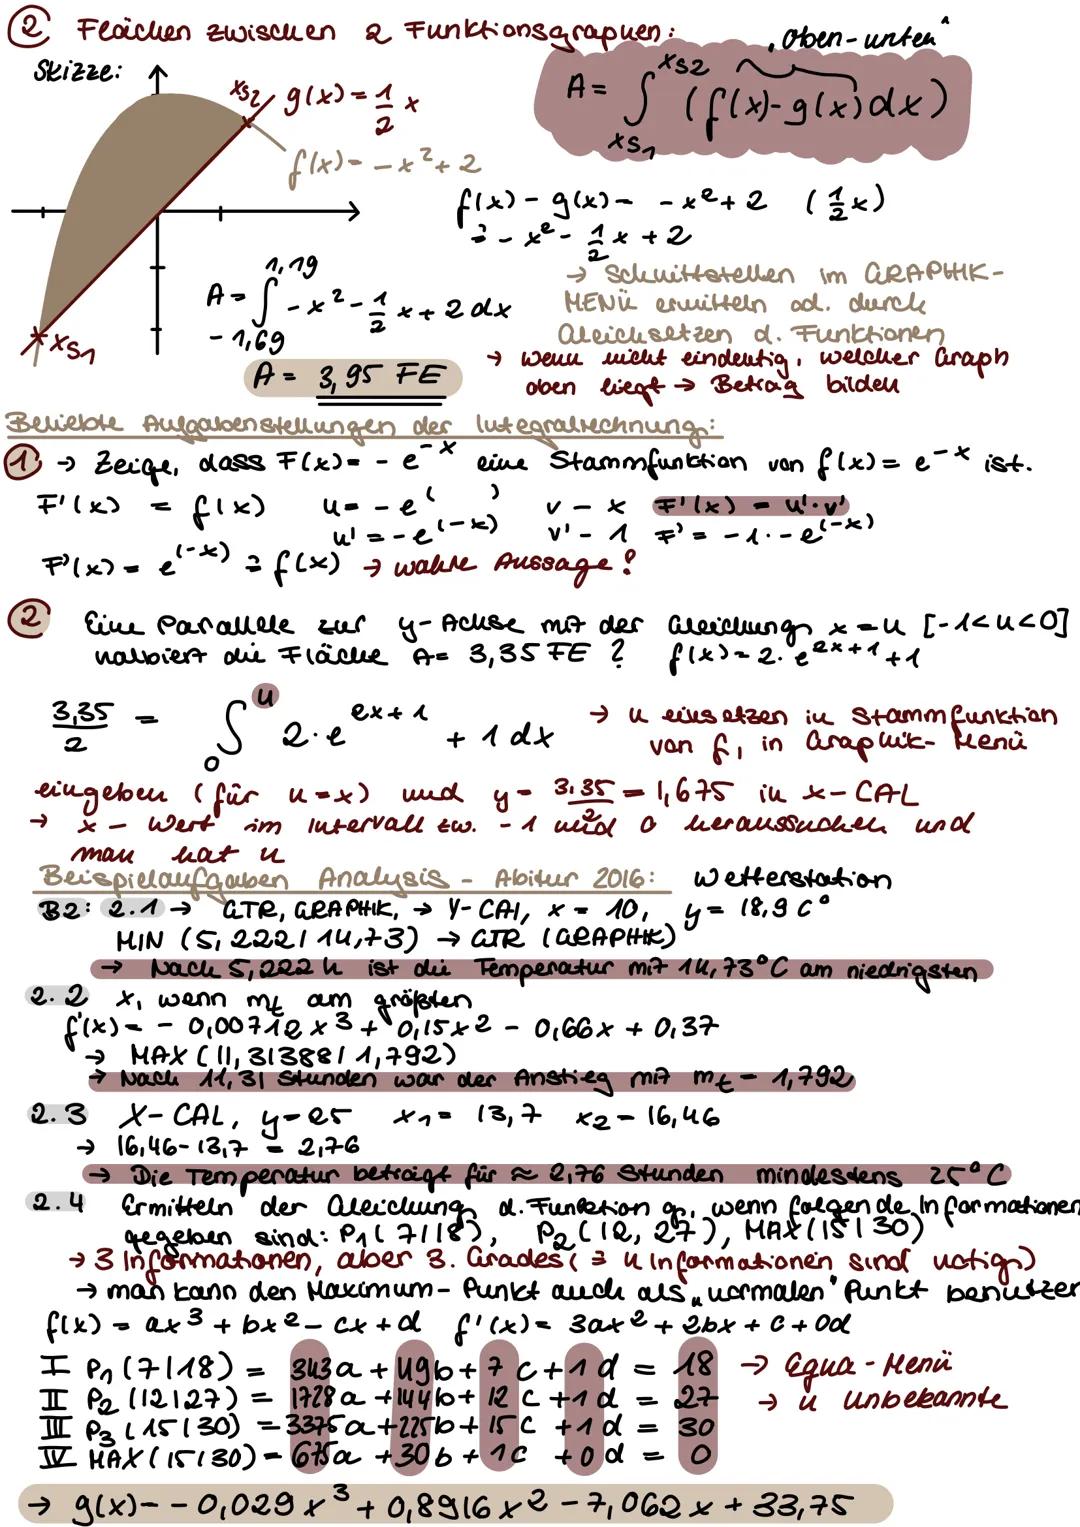 ② Flächen zwischen 2 Funktionsgraphen:
„Oben-unten"
Skizze:
xS2 g(x) = 1/2 x
f(x) = -x² + 2
A = ∫ xS1 xS2 (f(x)-g(x)dx)
f(x) - g(x) = -x² + 2 (1/2 x)
= -x² - 1/2 x + 2
→ Schnittstellen im GRAPHIK-
MENÜ ermitteln od. durch
Gleichsetzen d. Funktionen
→ wenn nicht eindeutig, welcher Graph
oben liegt → Betrag bilden
xS1
A = ∫ -1,69 1,19 -x² - 1/2 x + 2 dx
A = 3,95 FE
Beliebte Aufgabenstellungen der Integralrechnung:
① → Zeige, dass F(x) = -e^-x eine Stammfunktion von f(x) = e^-x ist.
F'(x) = f(x) u = -e^( ) v - x F'(x) = u'·v'
u' = -e^(-x) v' - 1 F' = -1·-e^(-x)
F'(x) = e^(-x) = f(x) → wahre Aussage!
② Eine Parallele zur y-Achse mit der Gleichung x = u [-1<u<0]
halbiert die Fläche A = 3,35 FE ? f(x) = 2·e^2x+1 +1
3,35/2 = ∫ 0 u 2·e^2x+1 + 1 dx
→ u einsetzen in Stammfunktion
von f, in Graphik-Menü
eingeben (für u=x) und y = 3,35/2 = 1,675 in x-CAL
→ x - Wert im Intervall zw. -1 und 0 heraussuchen und
man hat u
Beispielaufgaben Analysis - Abitur 2016: Wetterstation
B2: 2.1 → GTR, GRAPHIK, → Y-CAl, x = 10, y = 18,9 C°
MIN (5,222 | 14,73) → GTR (GRAPHIK)
→ Nach 5,222 h ist die Temperatur mit 14,73°C am niedrigsten
2.2 x, wenn mt am größten
f'(x) = -0,00712x³ + 0,15x² - 0,66x + 0,37
→ MAX (11,31388 | 1,792)
→ Nach 11,31 Stunden war der Anstieg mit mt = 1,792
2.3 X-CAL, y = 25 x1 = 13,7 x2 = 16,46
→ 16,46-13,7 = 2,76
→ Die Temperatur beträgt für ≈ 2,76 Stunden mindestens 25°C
2.4 Ermitteln der Gleichung d. Funktion g, wenn folgende Informationen
gegeben sind: P1(7|18), P2(12,27), MAX(15|30)
→ 3 Informationen, aber 3. Grades (= 4 Informationen sind nötig)
→ man kann den Maximum-Punkt auch als „normalen" Punkt benutzen
f(x) = ax³ + bx² - cx + d f'(x) = 3ax² + 2bx + c + 0d
I P1 (7|18) = 343a + 49b + 7c + 1d = 18 → Equa-Menü
II P2 (12|27) = 1728a + 144b + 12c + 1d = 27 → 4 Unbekannte
III P3 (15|30) = 3375a + 225b + 15c + 1d = 30
IV MAX (15|30) = 675a + 30b + 1c + 0d = 0
→ g(x) = -0,029x³ + 0,8916x² - 7,062x + 33,75